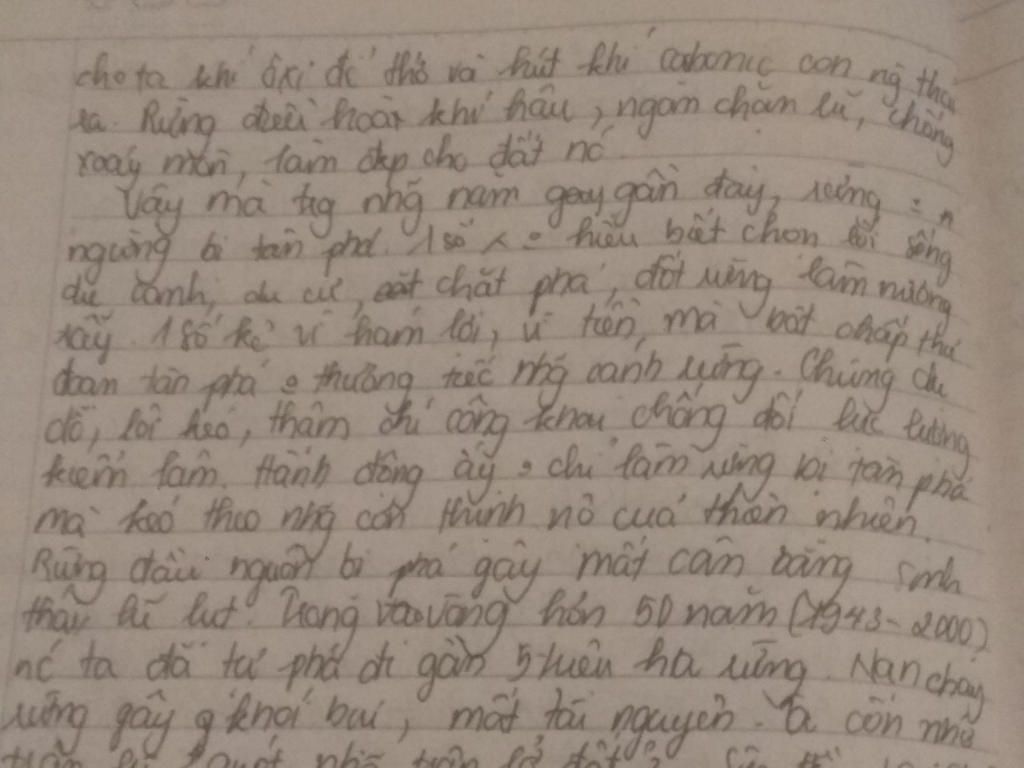 cho ta khí ôxi để thở và hút khí cabonic con ng thải
ra. Rừng điều hoà khí hậu, ngăn chặn lũ, chống
xoáy mòn, làm đẹp cho đất nc
Vậy mà trg nhg năm gay gần đây, rừng =
ngừng bị tàn phá. 1 số = hiểu biết chọn lối sống
du canh, du cư, chặt phá, đốt rừng làm nương
rẫy. 1 số kẻ vì ham lợi, vì tiền, mà bất chấp thủ
đoạn tàn phá = thương tiếc nhg cánh rừng. Chúng dụ
dỗ, lôi kéo, thậm chí công khai chống đối lực lượng
kiểm lâm. Hành động ấy = chỉ làm rừng bị tàn phá
mà kéo theo nhg cơn thịnh nộ của thiên nhiên.
Rừng đầu nguồn bị phá gây mất cân bằng sinh
thái lũ lụt. Trong vòng hơn 50 năm (1943-2000)
nc ta đã tự phá đi gần 5 triệu ha rừng. Nạn cháy
rừng gây khói bụi, mất tài nguyên. Ta còn nhớ
trận lũ quét nhg trận lở đất?